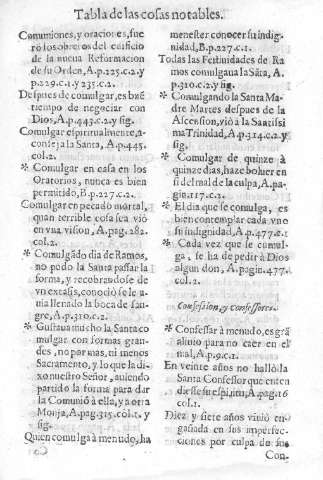 Tabla de las cosas notables.
Comuniones, y oraciones, fue
rō los obreros del edificio
de la nueva Reformacion
de su Orden, A.p.225.c.2. y
p.229.c.1. y 235.c.2.
Despues de comulgar, es buē
tiempo de negociar con
Dios, A.p.443.c.2. y sig.
Comulgar espiritualmente, a-
conseja la Santa, A.p.445.
col.2.
* Comulgar en casa en los
Oratorios, nunca es bien
permitido, B.p.227.c.2.
Comulgar en pecado mortal,
quan terrible cosa sea viò
en vna vision, A.pag.282.
col.2.
* Comulgādo dia de Ramos,
no pudo la Santa passar la
forma, y recobrandose de
vn extasis, conociò se le a-
uia llenado la boca de san-
gre, A.p.310.c.2.
* Gustaua mucho la Santa co
mulgar con formas gran-
des, no por mas, ni menos
Sacramento, y lo que la di-
xo nuestro Señor, auiendo
partido la forma para dar
la Comuniō à ella, y a otra
Monja, A.pag.315.col.1. y
sig.
Quien comulga à menudo, ha
menester conocer su indig-
nidad, B.p.227.c.1.
Todas las Festiuidades de Ra
mos comulgaua la Sāta, A.
p.310.c.2. y sig.
* Comulgando la Santa Ma-
dre Martes despues de la
Ascension, viò a la Santissi
ma Trinidad, A.p.314.c.2. y
sig.
* Comulgar de quinze à
quinze dias, haze boluer en
si del mal de la culpa, A.pa-
gin.117.c.1.
* El dia que se comulga, es
bien contemplar cada vno
su indignidad, A.p.477.c.1
* Cada vez que se comul-
ga, se ha de pedir à Dios
algun don, A.pagin.477.
col.2.
Confession, y Confessores.
* Confessar à menudo, es grā
aliuio para no caer en el
mal, A.p.9.c.1.
En veinte años no hallò la
Santa Confessor que enten
diesse su espiritu, A.pag.16
col.1.
Diez y siete años viuiò en-
gañada en sus imperfec-
ciones por culpa de sus
Con.